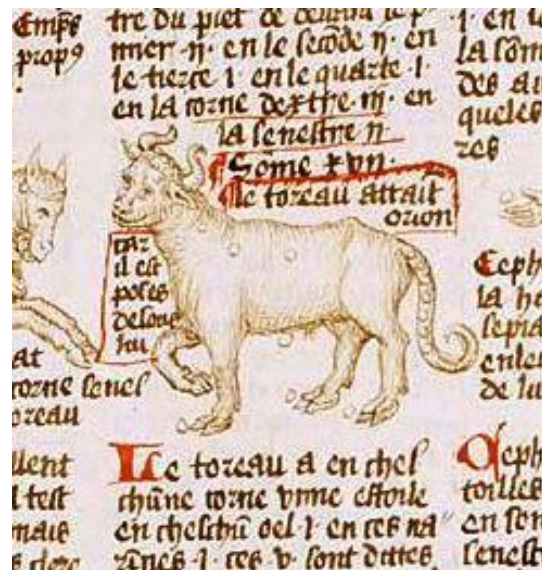 Empse
propꝯ
.
tre du piet de deuant le p̄
mer ·ii· en le secōde ii· en
le tierce i· en le quarte ·i·
en la corne dextre ·iii· en
la senestre ii·
Sōme xvii·
le toreau attait
orion
car
il est
poses
desous
lui
at
corne senes
oreau
llent
l test
mais
Le toreau a en ches
chūne corne vnne estoile
en cheschū oel ·i· en ces na
rines ·i· ces v· sont dittes
·i· en
la som
des au
queles
res
Ceph
la
septa
enle
de lu
Ceph
toilles
en son
senest